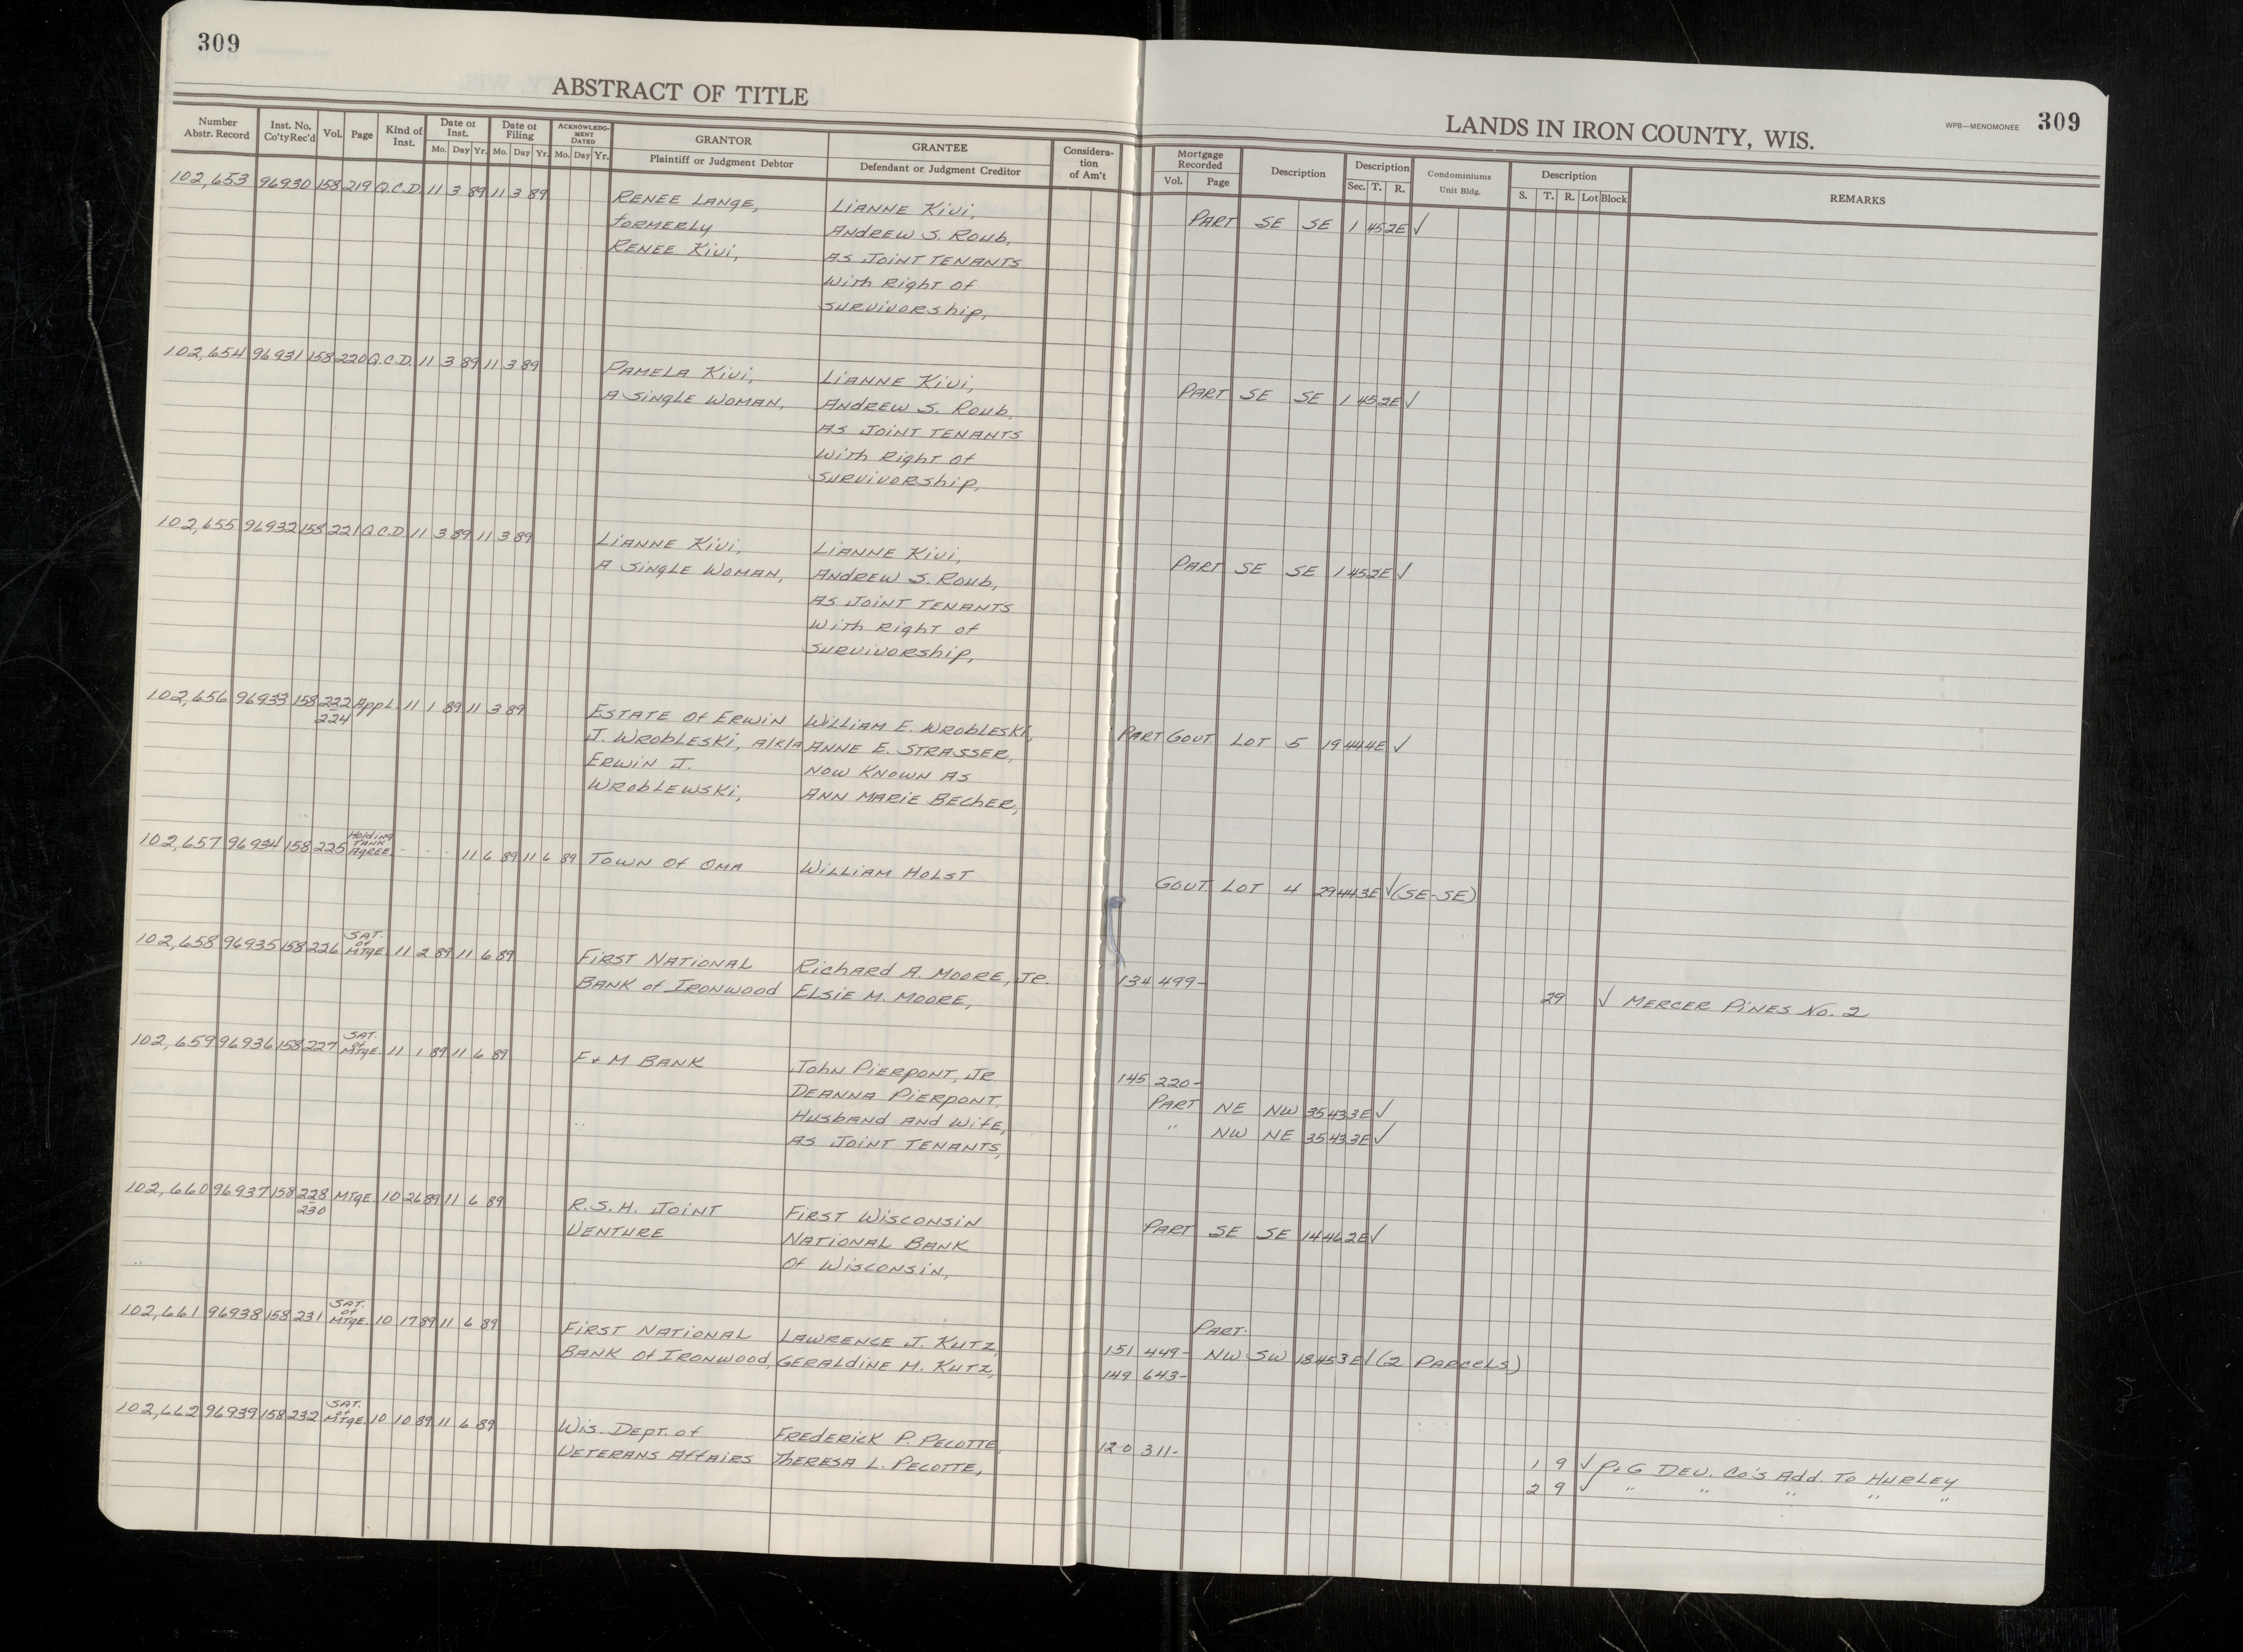 309
ABSTRACT OF TITLE
LANDS IN IRON COUNTY, WIS.
WPB—MENOMONEE 309
Number Abstr. Record
Inst. No. Co'ty Rec'd
Vol.
Page
Kind of Inst.
Date of Inst.
Mo. Day Yr.
Date of Filing
Mo. Day Yr.
ACKNOWLEDGMENT DATED
Mo. Day Yr.
GRANTOR
Plaintiff or Judgment Debtor
GRANTEE
Defendant or Judgment Creditor
Consideration of Am't
Mortgage Recorded
Vol. Page
Description
Description
Sec. T. R.
Condominiums
Unit Bldg.
Description
S. T. R. Lot Block
REMARKS
102,653 96930 158 219 Q.C.D. 11 3 89 11 3 89 RENEE LANGE, LIANNE KIVI, PART SE SE 1 45 2E ✓
FORMERLY ANDREW S. ROUB,
RENEE KIVI, AS JOINT TENANTS
WITH RIGHT OF
SURVIVORSHIP,
102,654 96931 158 220 Q.C.D. 11 3 89 11 3 89 PAMELA KIVI, LIANNE KIVI, PART SE SE 1 45 2E ✓
A SINGLE WOMAN, ANDREW S. ROUB,
AS JOINT TENANTS
WITH RIGHT OF
SURVIVORSHIP,
102,655 96932 158 221 Q.C.D. 11 3 89 11 3 89 LIANNE KIVI, LIANNE KIVI, PART SE SE 1 45 2E ✓
A SINGLE WOMAN, ANDREW S. ROUB,
AS JOINT TENANTS
WITH RIGHT OF
SURVIVORSHIP,
102,656 96933 158 222 APPL. 11 1 89 11 3 89 ESTATE OF ERWIN WILLIAM E. WROBLESKI, PART GOVT. LOT 5 19 44 4E ✓
224 J. WROBLESKI, A/K/A ANNE E. STRASSER,
ERWIN J. NOW KNOWN AS
WROBLEWSKI, ANN MARIE BECHER,
102,657 96934 158 225 HOLDING TANK AGREE. - - - 11 6 89 11 6 89 TOWN OF OMA WILLIAM HOLST GOVT. LOT 4 29 44 3E ✓ (SE-SE)
102,658 96935 158 226 SAT. OF MTGE. 11 2 89 11 6 89 FIRST NATIONAL RICHARD A. MOORE, JR. 134 499-
BANK OF IRONWOOD ELSIE M. MOORE, 29 ✓ MERCER PINES NO. 2
102,659 96936 158 227 SAT. OF MTGE. 11 1 89 11 6 89 F & M BANK JOHN PIERPONT, JR 145 220-
DEANNA PIERPONT, PART NE NW 35 43 3E ✓
HUSBAND AND WIFE, " NW NE 35 43 3E ✓
AS JOINT TENANTS,
102,660 96937 158 228 MTGE. 10 26 89 11 6 89 R.S.H. JOINT FIRST WISCONSIN PART SE SE 14 46 2E ✓
230 VENTURE NATIONAL BANK
OF WISCONSIN,
102,661 96938 158 231 SAT. OF MTGE. 10 17 89 11 6 89 FIRST NATIONAL LAWRENCE J. KUTZ, PART
BANK OF IRONWOOD, GERALDINE M. KUTZ, 151 449- NW SW 18 45 3E ✓ (2 PARCELS)
149 643-
102,662 96939 158 232 SAT. OF MTGE. 10 10 89 11 6 89 WIS. DEPT. OF FREDERICK P. PECOTTE, 120 311-
VETERANS AFFAIRS THERESA L. PECOTTE, 1 9 ✓ P & G DEV. CO'S ADD. TO HURLEY
2 9 ✓ " " " " "